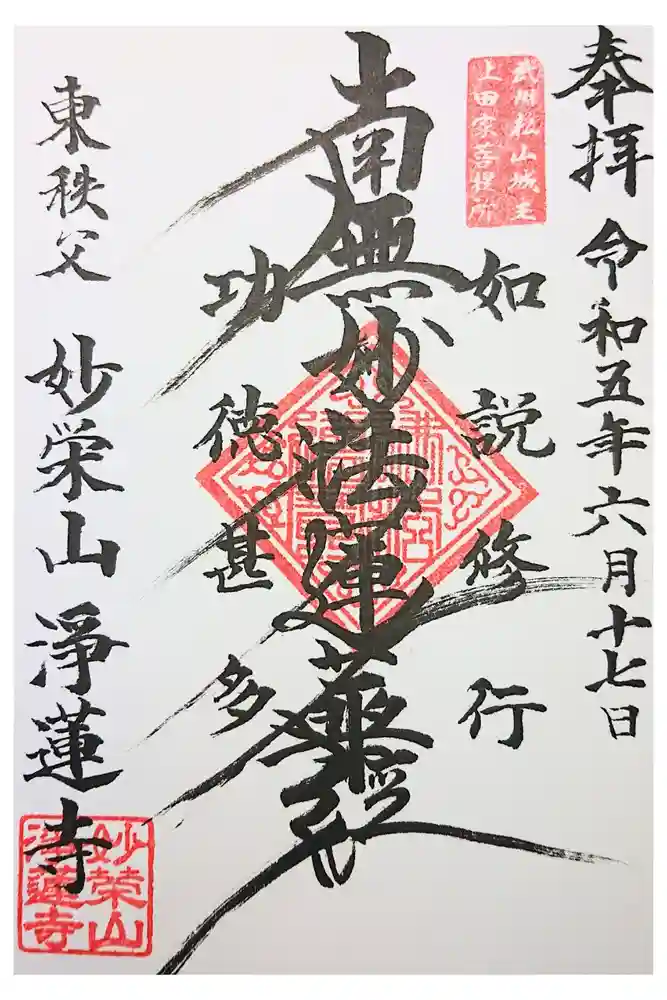 奉拝 令和五年六月十七日
武州松山城主
上田家菩提所
如説修行
南無妙法蓮華経
功徳甚多
東秩父 妙栄山 淨蓮寺
妙榮山
淨蓮寺